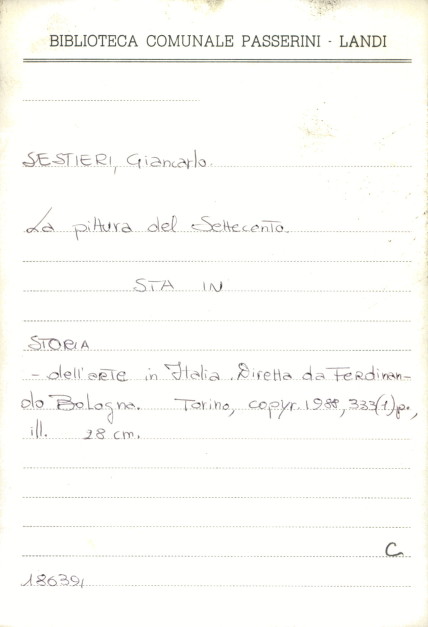 BIBLIOTECA COMUNALE PASSERINI - LANDI
SESTIERI, Giancarlo.
La pittura del Settecento.
STA IN
STORIA
- dell'arte in Italia. Diretta da Ferdinan-
do Bologna. Torino, copyr. 1988, 333(1)p.,
ill. 28 cm.
C
186391